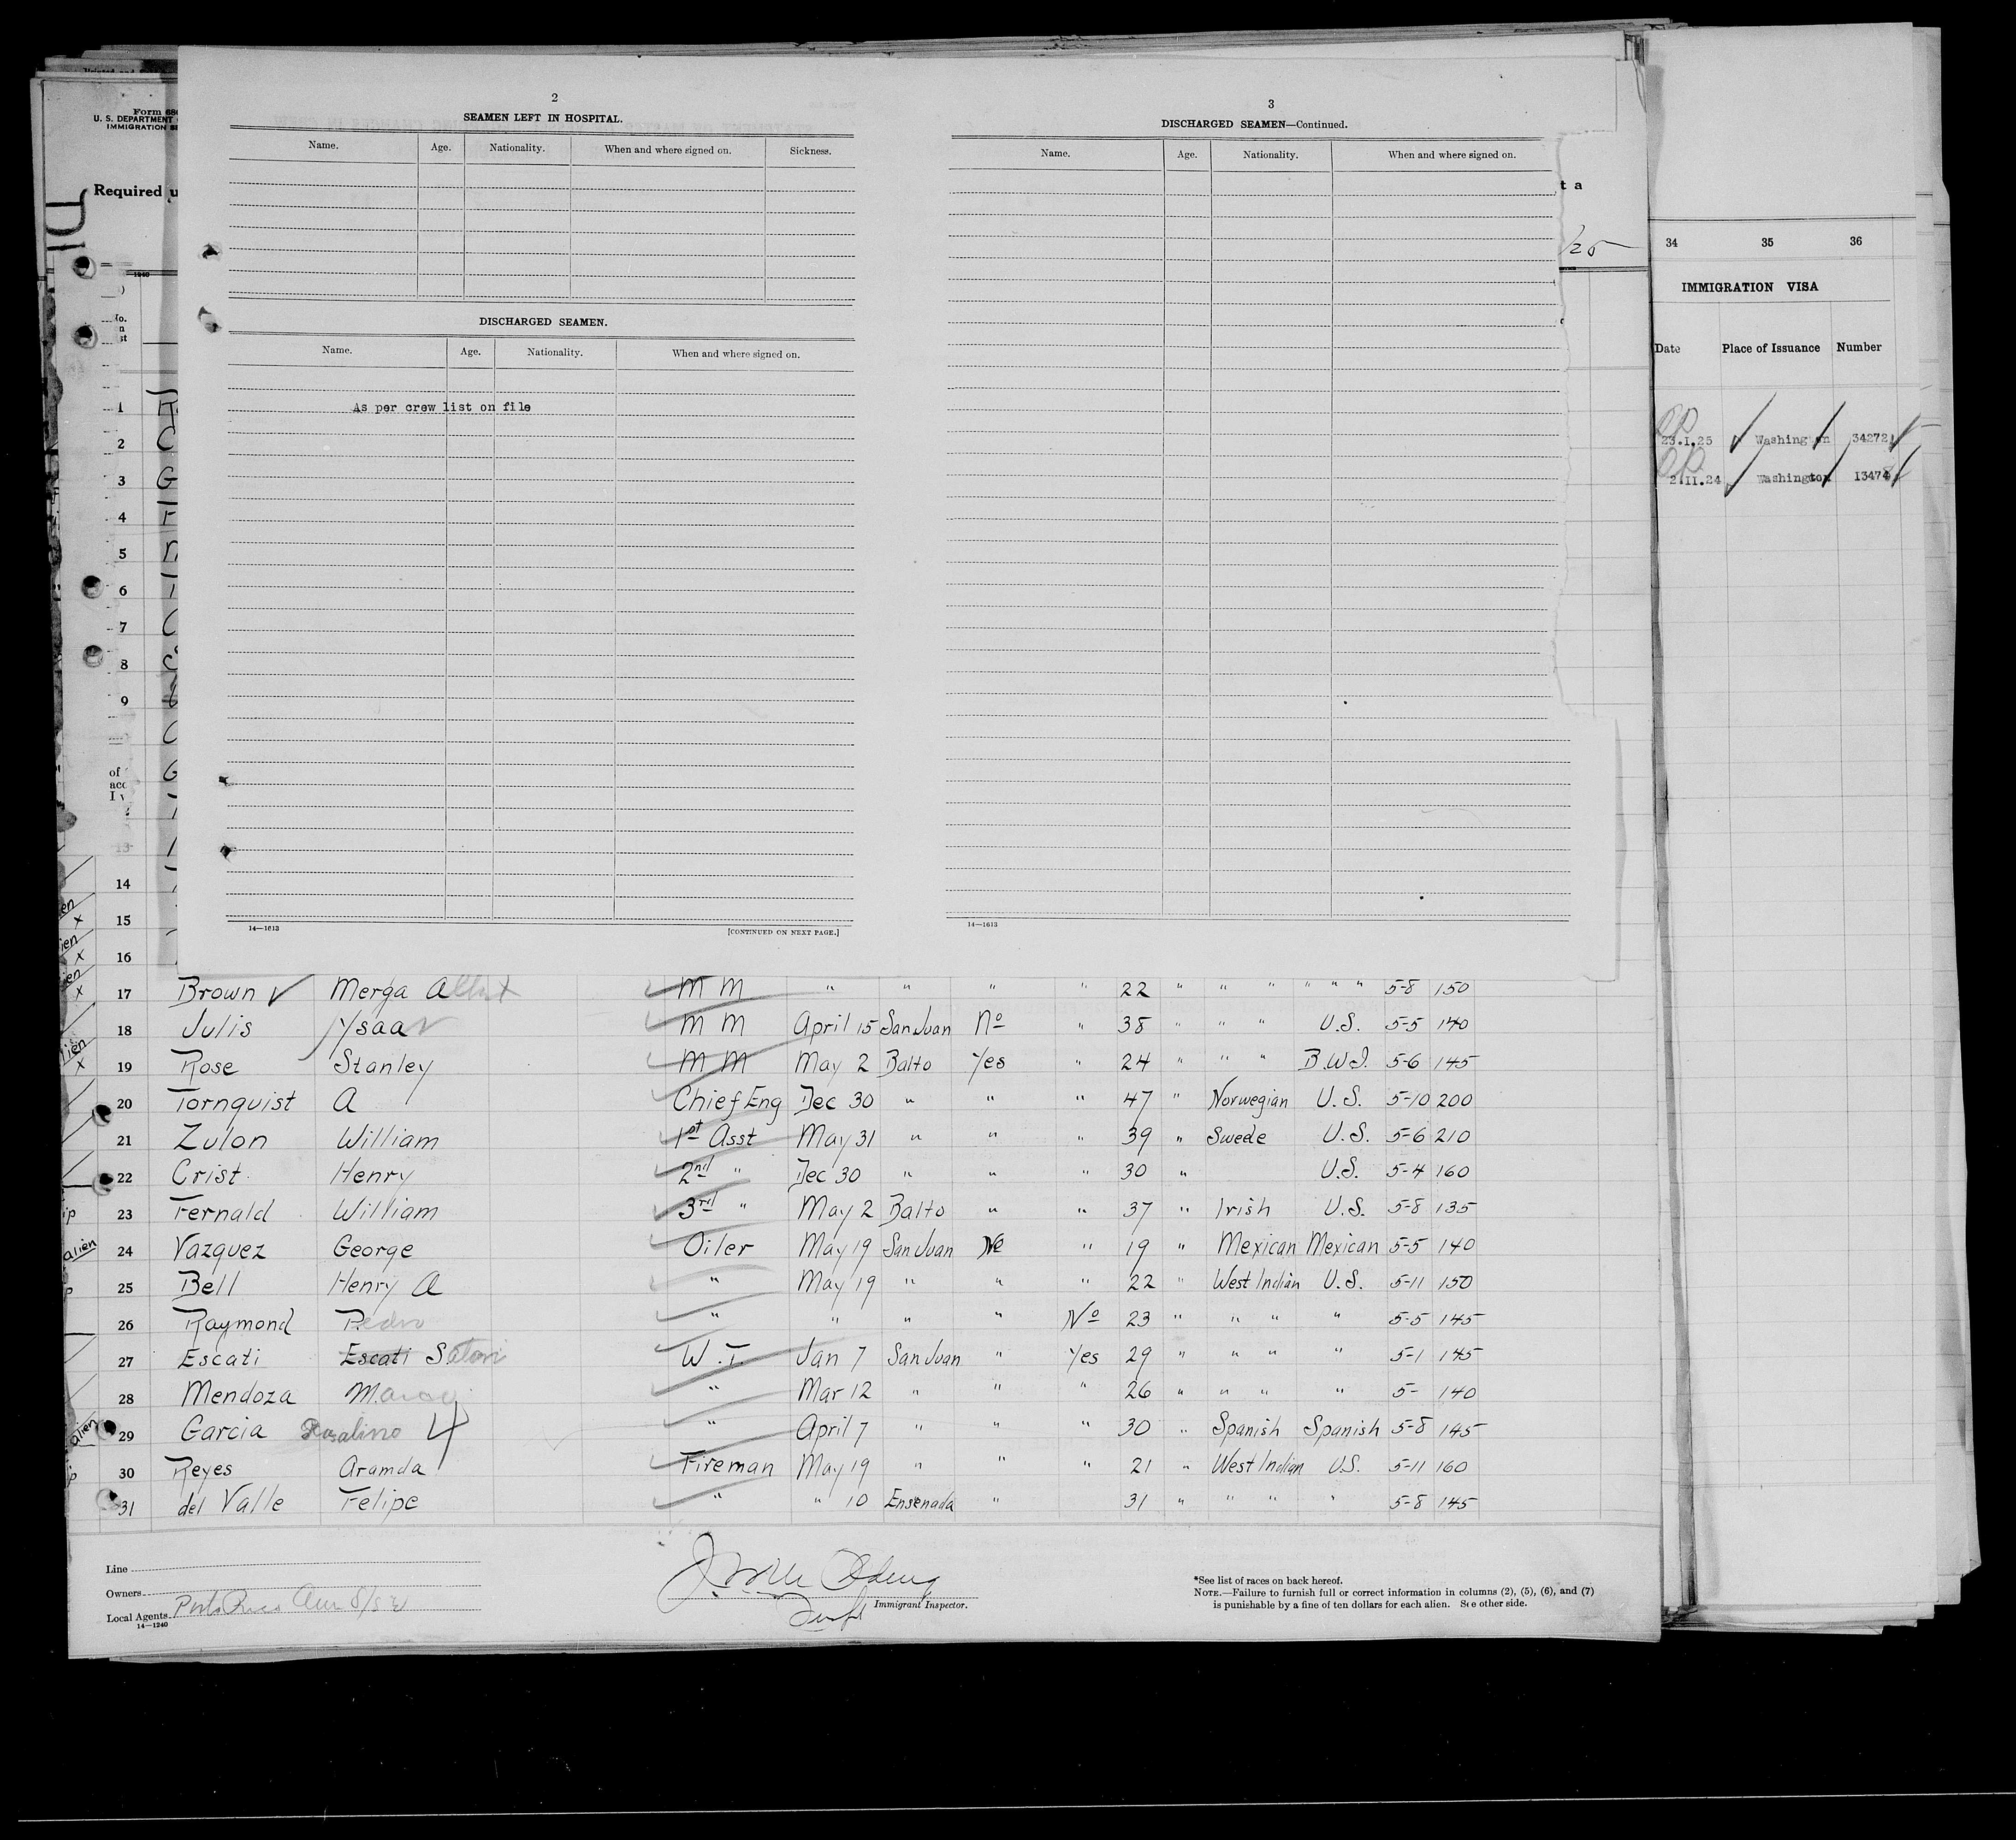 Form 680
U. S. DEPARTMENT
IMMIGRATION SE
Required u
2
SEAMEN LEFT IN HOSPITAL.
Name. Age. Nationality. When and where signed on. Sickness.
DISCHARGED SEAMEN.
Name. Age. Nationality. When and where signed on.
As per crew list on file
14—1613 [CONTINUED ON NEXT PAGE.]
3
DISCHARGED SEAMEN—Continued.
Name. Age. Nationality. When and where signed on.
14—1613
t a
/25
34 35 36
IMMIGRATION VISA
Date Place of Issuance Number
23.I.25 Washington 34272
2.II.24 Washington 13474
1
2
3
4
5
6
7
8
9
14
15
16
17 Brown Merga Albert M M " " " " 22 " " " " " " 5-8 150
18 Julis Ysaa M M April 15 San Juan No " 38 " " " U.S. 5-5 140
19 Rose Stanley M M May 2 Balto Yes " 24 " " " B.W.I. 5-6 145
20 Tornquist A Chief Eng Dec 30 " " " 47 " Norwegian U.S. 5-10 200
21 Zulon William 1st Asst May 31 " " " 39 " Swede U.S. 5-6 210
22 Crist Henry 2nd " Dec 30 " " " 30 " U.S. 5-4 160
23 Fernald William 3rd " May 2 Balto " " 37 " Irish U.S. 5-8 135
alien 24 Vazquez George Oiler May 19 San Juan No " 19 " Mexican Mexican 5-5 140
25 Bell Henry A " May 19 " " " 22 " West Indian U.S. 5-11 150
26 Raymond Pedro " " " " No 23 " " " " 5-5 145
27 Escati Escati W.T. Jan 7 San Juan " Yes 29 " " " " 5-1 145
28 Mendoza " Mar 12 " " " 26 " " " " 5- 140
alien 29 Garcia Rosalino 4 " April 7 " " " 30 " Spanish Spanish 5-8 145
30 Reyes Aramda Fireman May 19 " " " 21 " West Indian U.S. 5-11 160
31 del Valle Felipe " " 10 Ensenada " 31 " " " " 5-8 145
Line
Owners
Local Agents Porto Rico Am S/S
14—1240
Immigrant Inspector.
*See list of races on back hereof.
NOTE.—Failure to furnish full or correct information in columns (2), (5), (6), and (7)
is punishable by a fine of ten dollars for each alien. See other side.